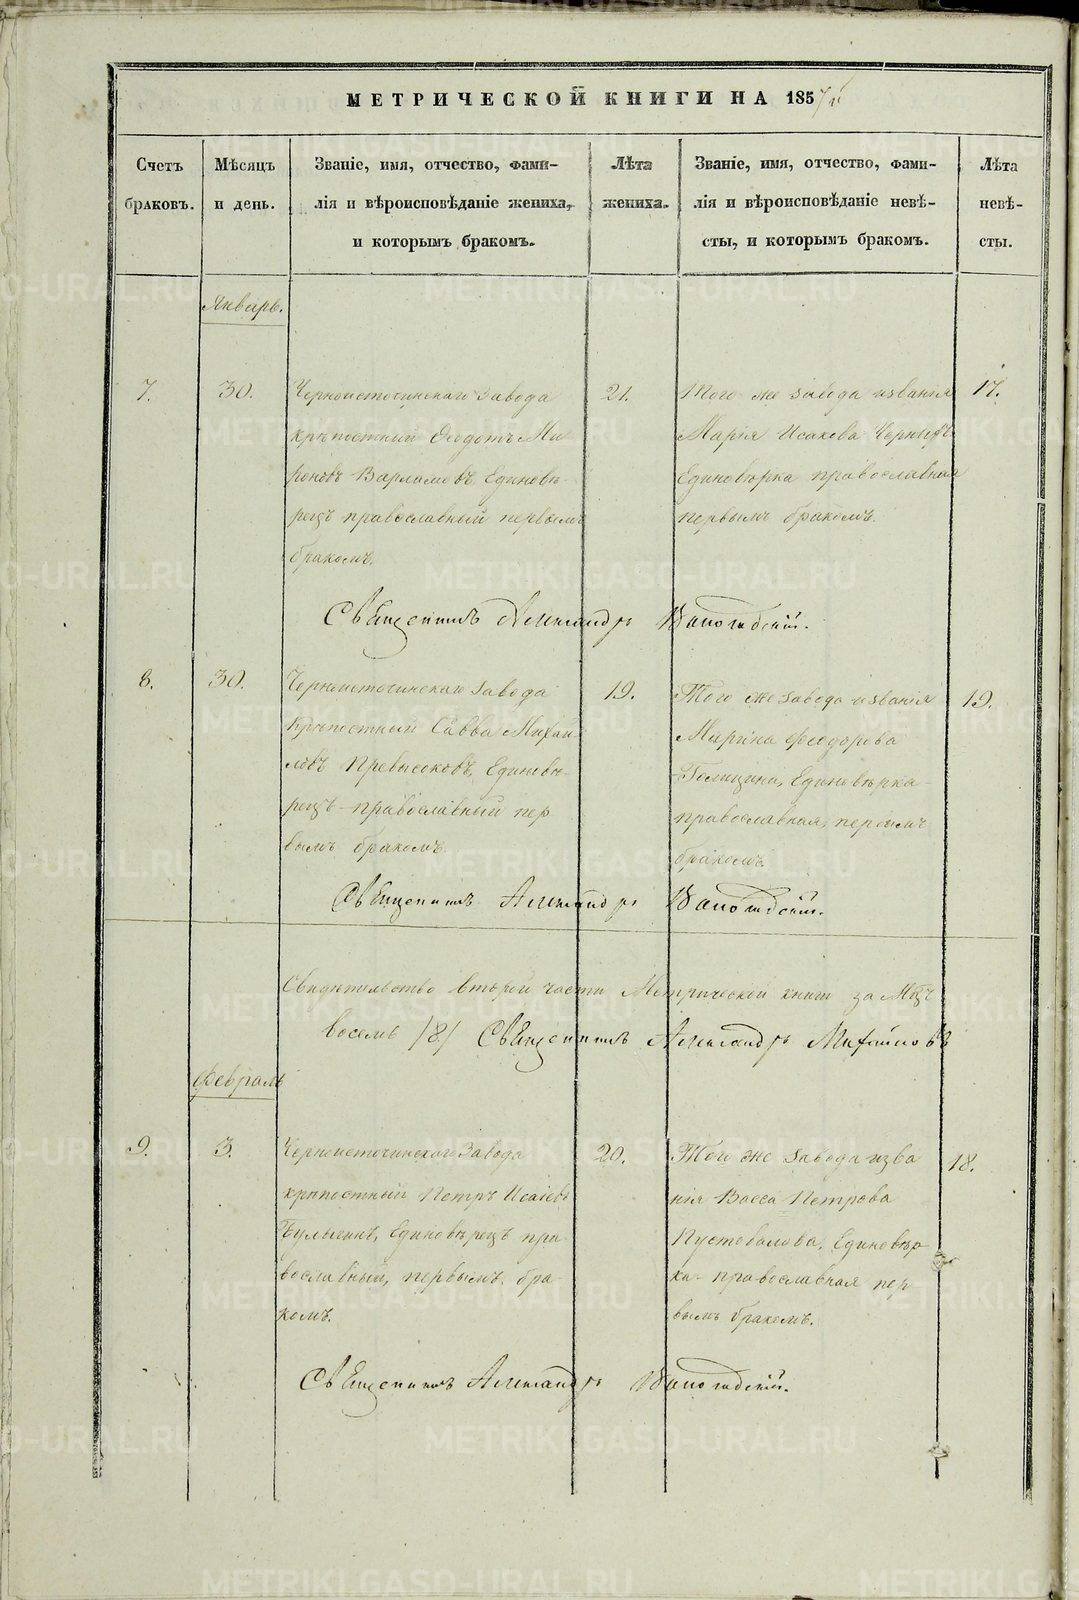 МЕТРИЧЕСКОЙ КНИГИ НА 1857й
Счетъ браковъ.
Мѣсяцъ и день.
Званіе, имя, отчество, фами-
лія и вѣроисповѣданіе жениха,
и которымъ бракомъ.
Лѣта жениха.
Званіе, имя, отчество, фами-
лія и вѣроисповѣданіе невѣ-
сты, и которымъ бракомъ.
Лѣта невѣ-
сты.
Январь.
7.
30.
Черноисточинскаго завода
крѣпостный Ѳедотъ Ми
роновъ Варламовъ, Единовѣ-
рецъ православный первымъ
бракомъ.
21.
Того же завода и званія
Марія Исакова Черныхъ
Единовѣрка православная
первымъ бракомъ.
17.
Священникъ Александръ
8.
30.
Черноисточинскаго завода
крѣпостный Савва Михаи
ловъ Превысоковъ, Единовѣ-
рецъ православный пер
вымъ бракомъ.
19.
Того же завода и званія
Марина Феодорова
Голицина, Единовѣрка
православная, первымъ
бракомъ.
19.
Священникъ Александръ
Свидѣтельство второй части Метрической книги за Мцъ
восемь /8/ Священникъ Александръ Михайловъ
Февраль
9.
3.
Черноисточинскаго Завода
крѣпостный Петръ Исаковъ
Булыгинъ, Единовѣрецъ пра
вославный, первымъ бра-
комъ.
20.
Того же завода и зва
нія Васса Петрова
Пустовалова, Единовѣр-
ка православная пер
вымъ бракомъ.
18.
Священникъ Александръ
METRIKI.GASO-URAL.RU